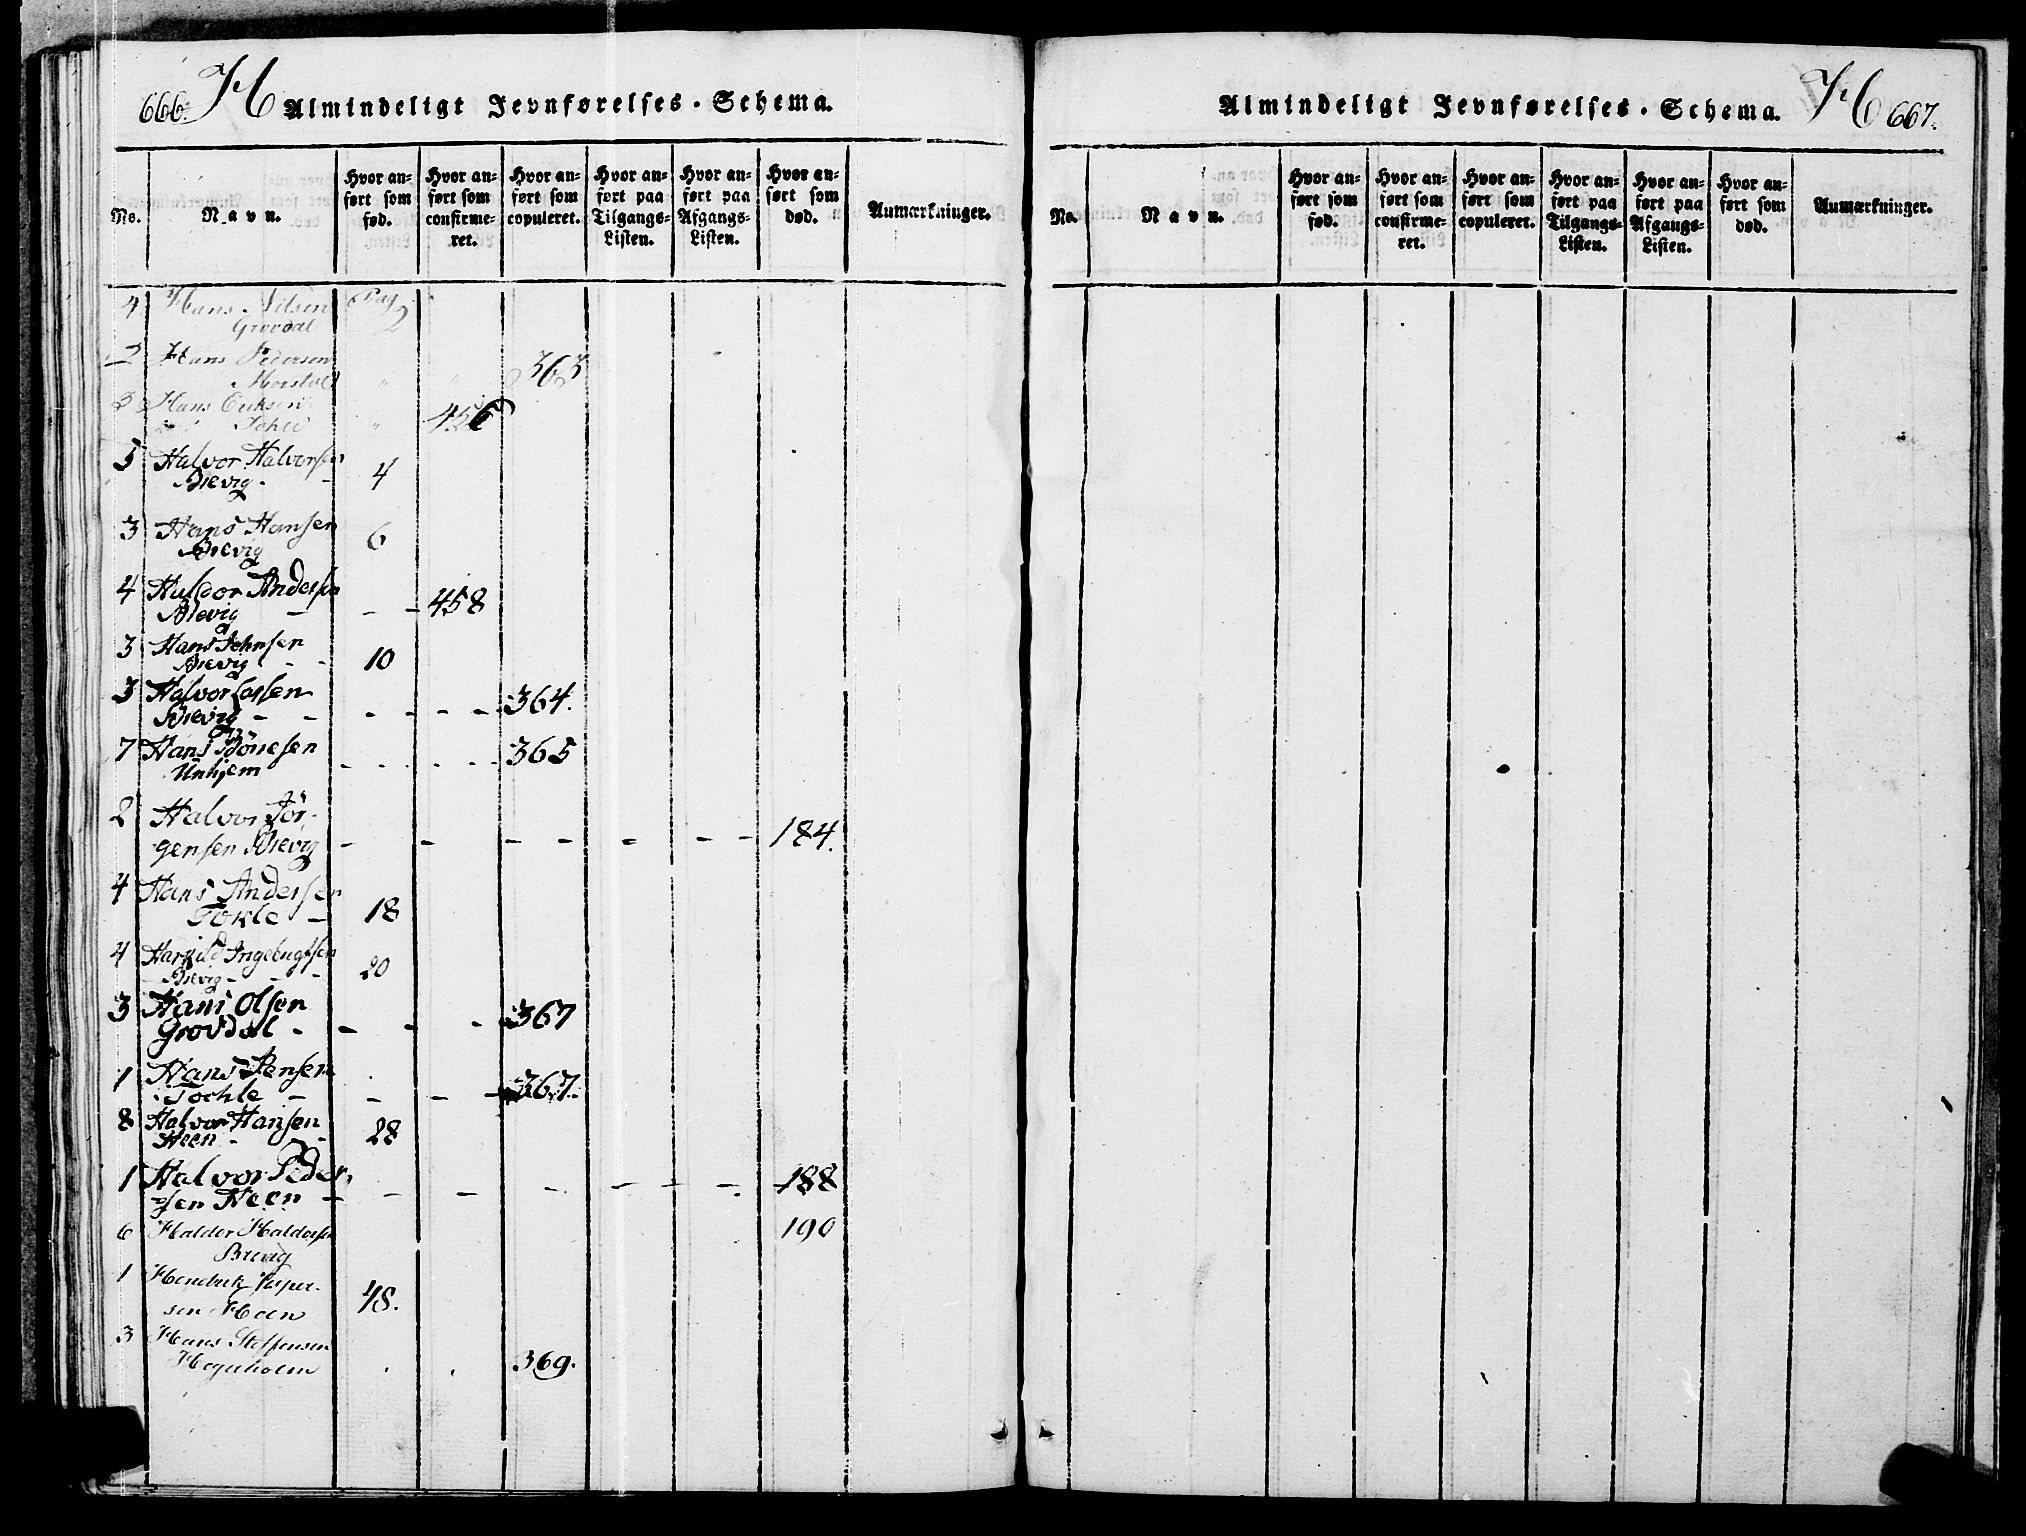 666. H Almindeligt Jevnførelses-Schema.
No. Navn. Hvor anført som fød. Hvor anført som confirmeret. Hvor anført som copuleret. Hvor anført paa Tilgangs-Listen. Hvor anført paa Afgangs-Listen. Hvor anført som død. Anmærkninger.
4 Hans Nilsen Pag
Grovdal 2
2 Hans Pedersen
" " 363
3 Hans Eriksen
Tokle " 456
5 Halvor Halvorsen
Brevig - 4
3 Hans Hansen
Brevig 6
4 Haldor Andersen
Brevig - - - 458
3 Hans Johnsen
Brevig - - 10
3 Halvor Larsen
Brevig - - - - - - 364.
7 Hans Bönesen
Unhjem - - - - - 365
2 Halvor Jör-
gensen Brevig - - - - - - - 184.
4 Hans Andersen
Tokle - 18
4 Ingebrigtsen
Brevig - - - 20
3 Hans Olsen
Grovdal - - - - 367
1 Hans Jensen
Tochle - - - - 367.
8 Halvor Hansen
Heen - - 28
1 Halvor Peder-
sen Heen - - - - - - - 188
6 Haldor Haldorsen 190
Brevig
1 Hendrik Jesper-
sen Heen 48.
3 Hans Steffensen
369.
Almindeligt Jevnførelses-Schema. H 667.
No. Navn. Hvor anført som fød. Hvor anført som confirmeret. Hvor anført som copuleret. Hvor anført paa Tilgangs-Listen. Hvor anført paa Afgangs-Listen. Hvor anført som død. Anmærkninger.